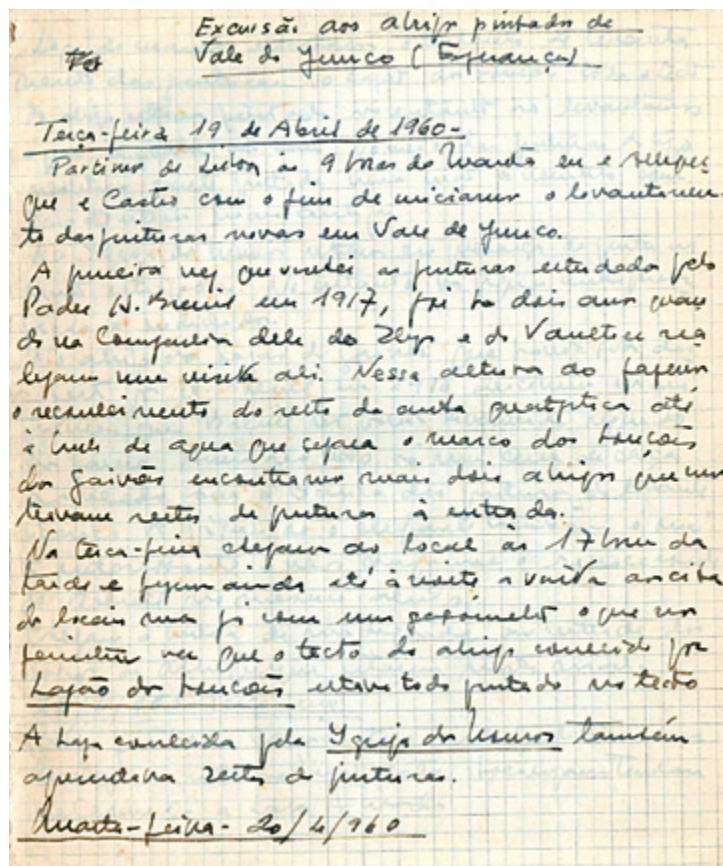 Excursão aos abrigos pintados de
Vale do Junco (Esperança)
Terça-feira 19 de Abril de 1960-
Partimos de Lisboa às 9 horas da manhã eu e
que e Castro com o fim de iniciarmos o levantamen
to das pinturas novas em Vale de Junco.
A primeira vez que visitei as pinturas estudadas pelo
Padre H. Breuil em 1917, foi ha dois anos quan
do na Companhia dele do Zbys e do Vaultier rea
lizamos uma visita ali. Nessa altura ao fazermos
o reconhecimento do resto da crista quartzitica até
à linha de agua que separa o marco dos Loucões
dos Gaivões encontramos mais dois abrigos que mos
travam restos de pinturas à entrada.
Na terça-feira chegamos ao local às 17 horas da
tarde e fizemos ainda até à noite a visita
do locais mas já com um gasómetro o que nos
permitiu ver que o tecto do abrigo conhecido por
Lapão dos Loucões estava todo pintado no tecto
A Lapa conhecida pela Igreja dos Mouros também
apresentava restos de pinturas.
Quarta-feira - 20/4/960